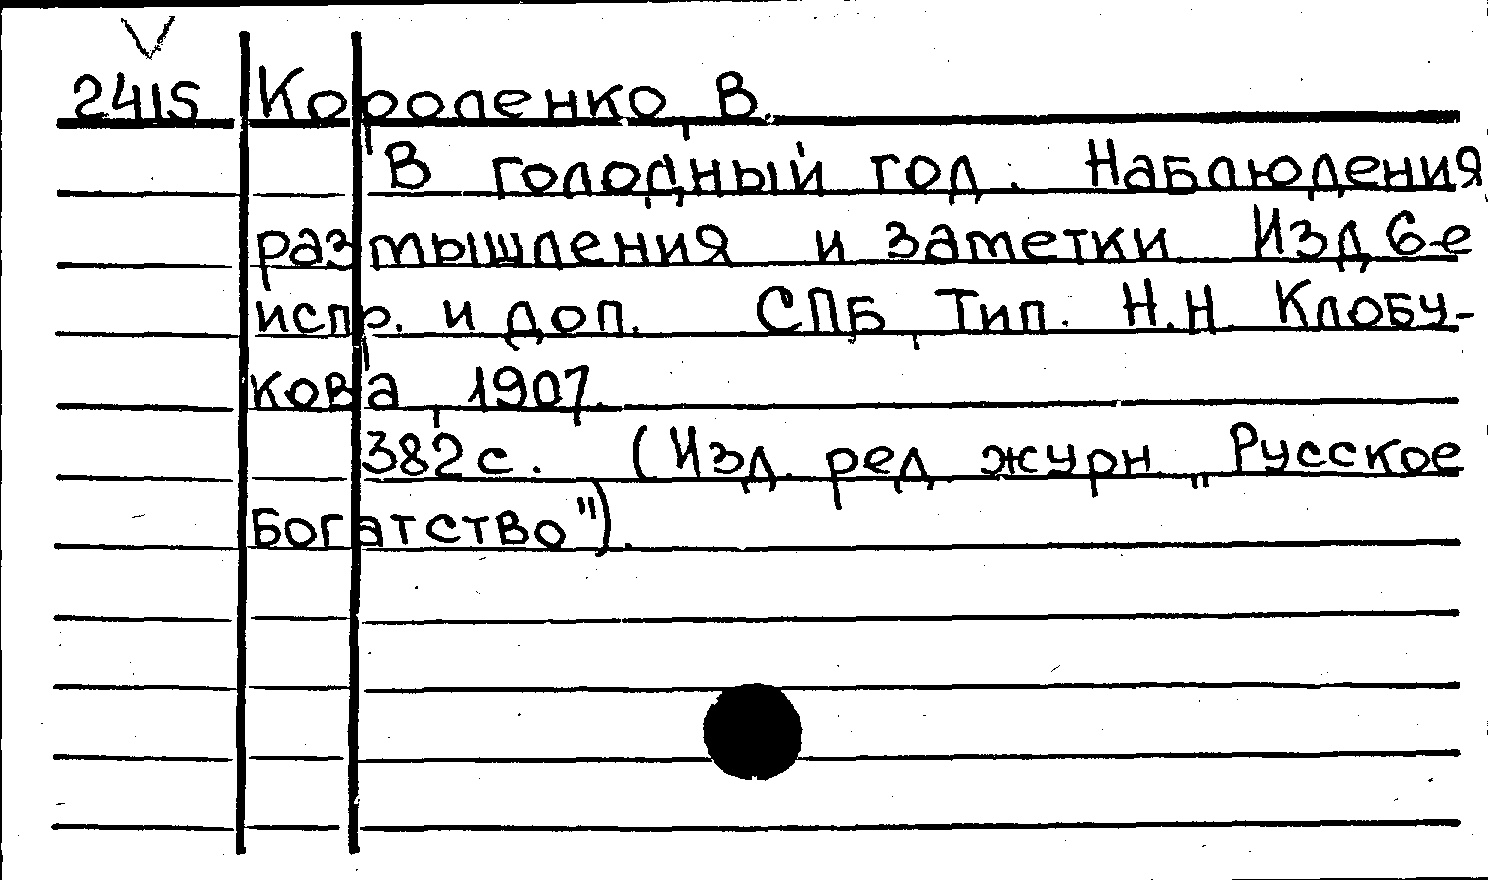 2415 Короленко, В.
В голодный год. Наблюдения
размышления и заметки Изд 6-е
испр. и доп. СПБ, Тип. Н.Н Клобу-
кова, 1907.
382 с. (Изд. ред журн „Русское
Богатство").